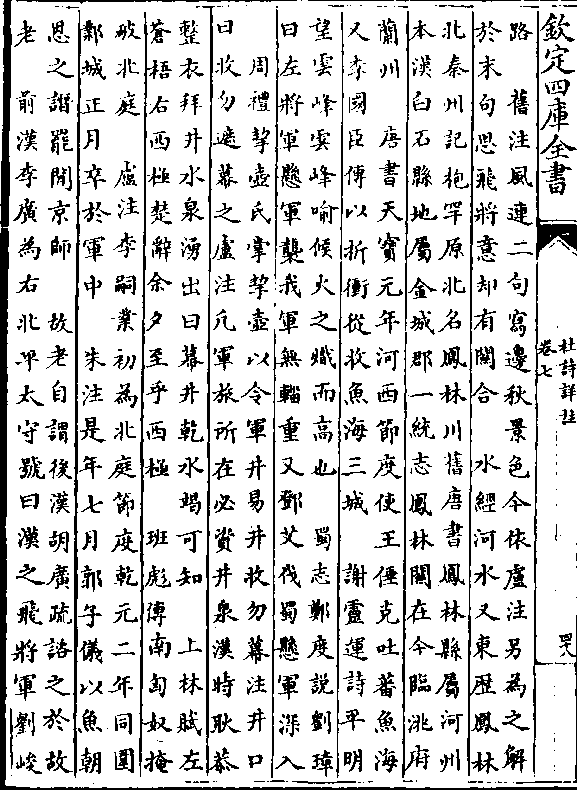 欽定四庫全書
杜詩詳註
卷七
路　舊注風連二句寫邊秋景色今依盧注另為之解
於末句思飛將意却有關合　水經河水又東歴鳳林
北秦州記枹罕原北名鳳林川舊唐書鳳林縣屬河州
本漢白石縣地屬金城郡一統志鳳林關在今臨洮府
蘭州　唐書天寳元年河西節度使王倕克吐蕃魚海
又李國臣傳以折衝從收魚海三城　謝靈運詩平明
望雲峰雲峰喻候火之熾而高也　蜀志鄭度説劉璋
曰左將軍懸軍襲我軍無輜重又鄧艾伐蜀懸軍深入
　周禮挈壺氏掌挈壺以令軍井易井收勿幕注井口
曰收勿遮幕之盧注凡軍旅所在必資井泉漢時耿恭
整衣拜井水泉湧出曰幕井乾水竭可知　上林賦左
蒼梧右西極楚辭余夕至乎西極　班彪傳南匈奴掩
破北庭　盧注李嗣業初為北庭節度乾元二年同圍
鄴城正月卒於軍中　朱注是年七月郭子儀以魚朝
恩之譖罷閒京師　故老自謂後漢胡廣疏諮之於故
老　前漢李廣為右北平太守號曰漢之飛將軍劉峻